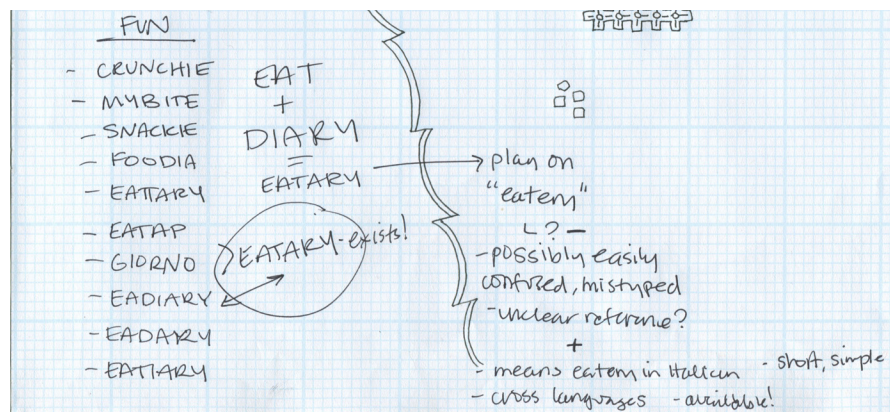 FUN
- CRUNCHIE
- MYBITE
- SNACKIE
- FOODIA
- EATTARY
- EATAP
- GIORNO
- EADIARY
- EADARY
- EATIARY
EAT
+
DIARY
=
EATARY
EATARY-exists!
plan on
"eatery"
? -
- possibly easily
confused, mistyped
- unclear reference?
+
- means eatery in Italian - short, simple
- cross languages - available!